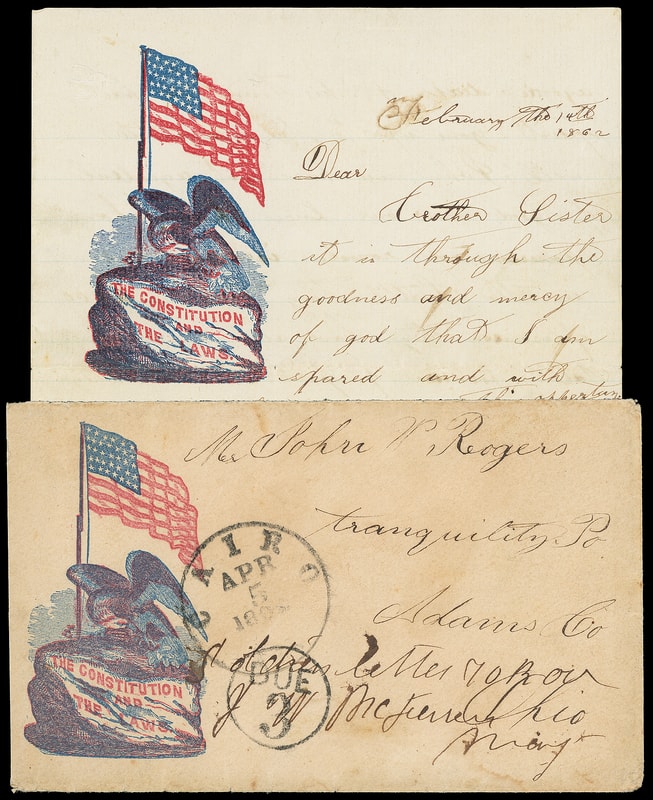 February the 14th
1862
Dear
Brother Sister
it is through the
goodness and mercy
of god that I am
spared and with
THE CONSTITUTION
AND
THE LAWS.
Mr John P Rogers
tranquility Po
Adams Co
Ohio
CAIRO
APR
5
DUE
3
Soldiers letter 70 
J W McFerren
Maj
THE CONSTITUTION
AND
THE LAWS.